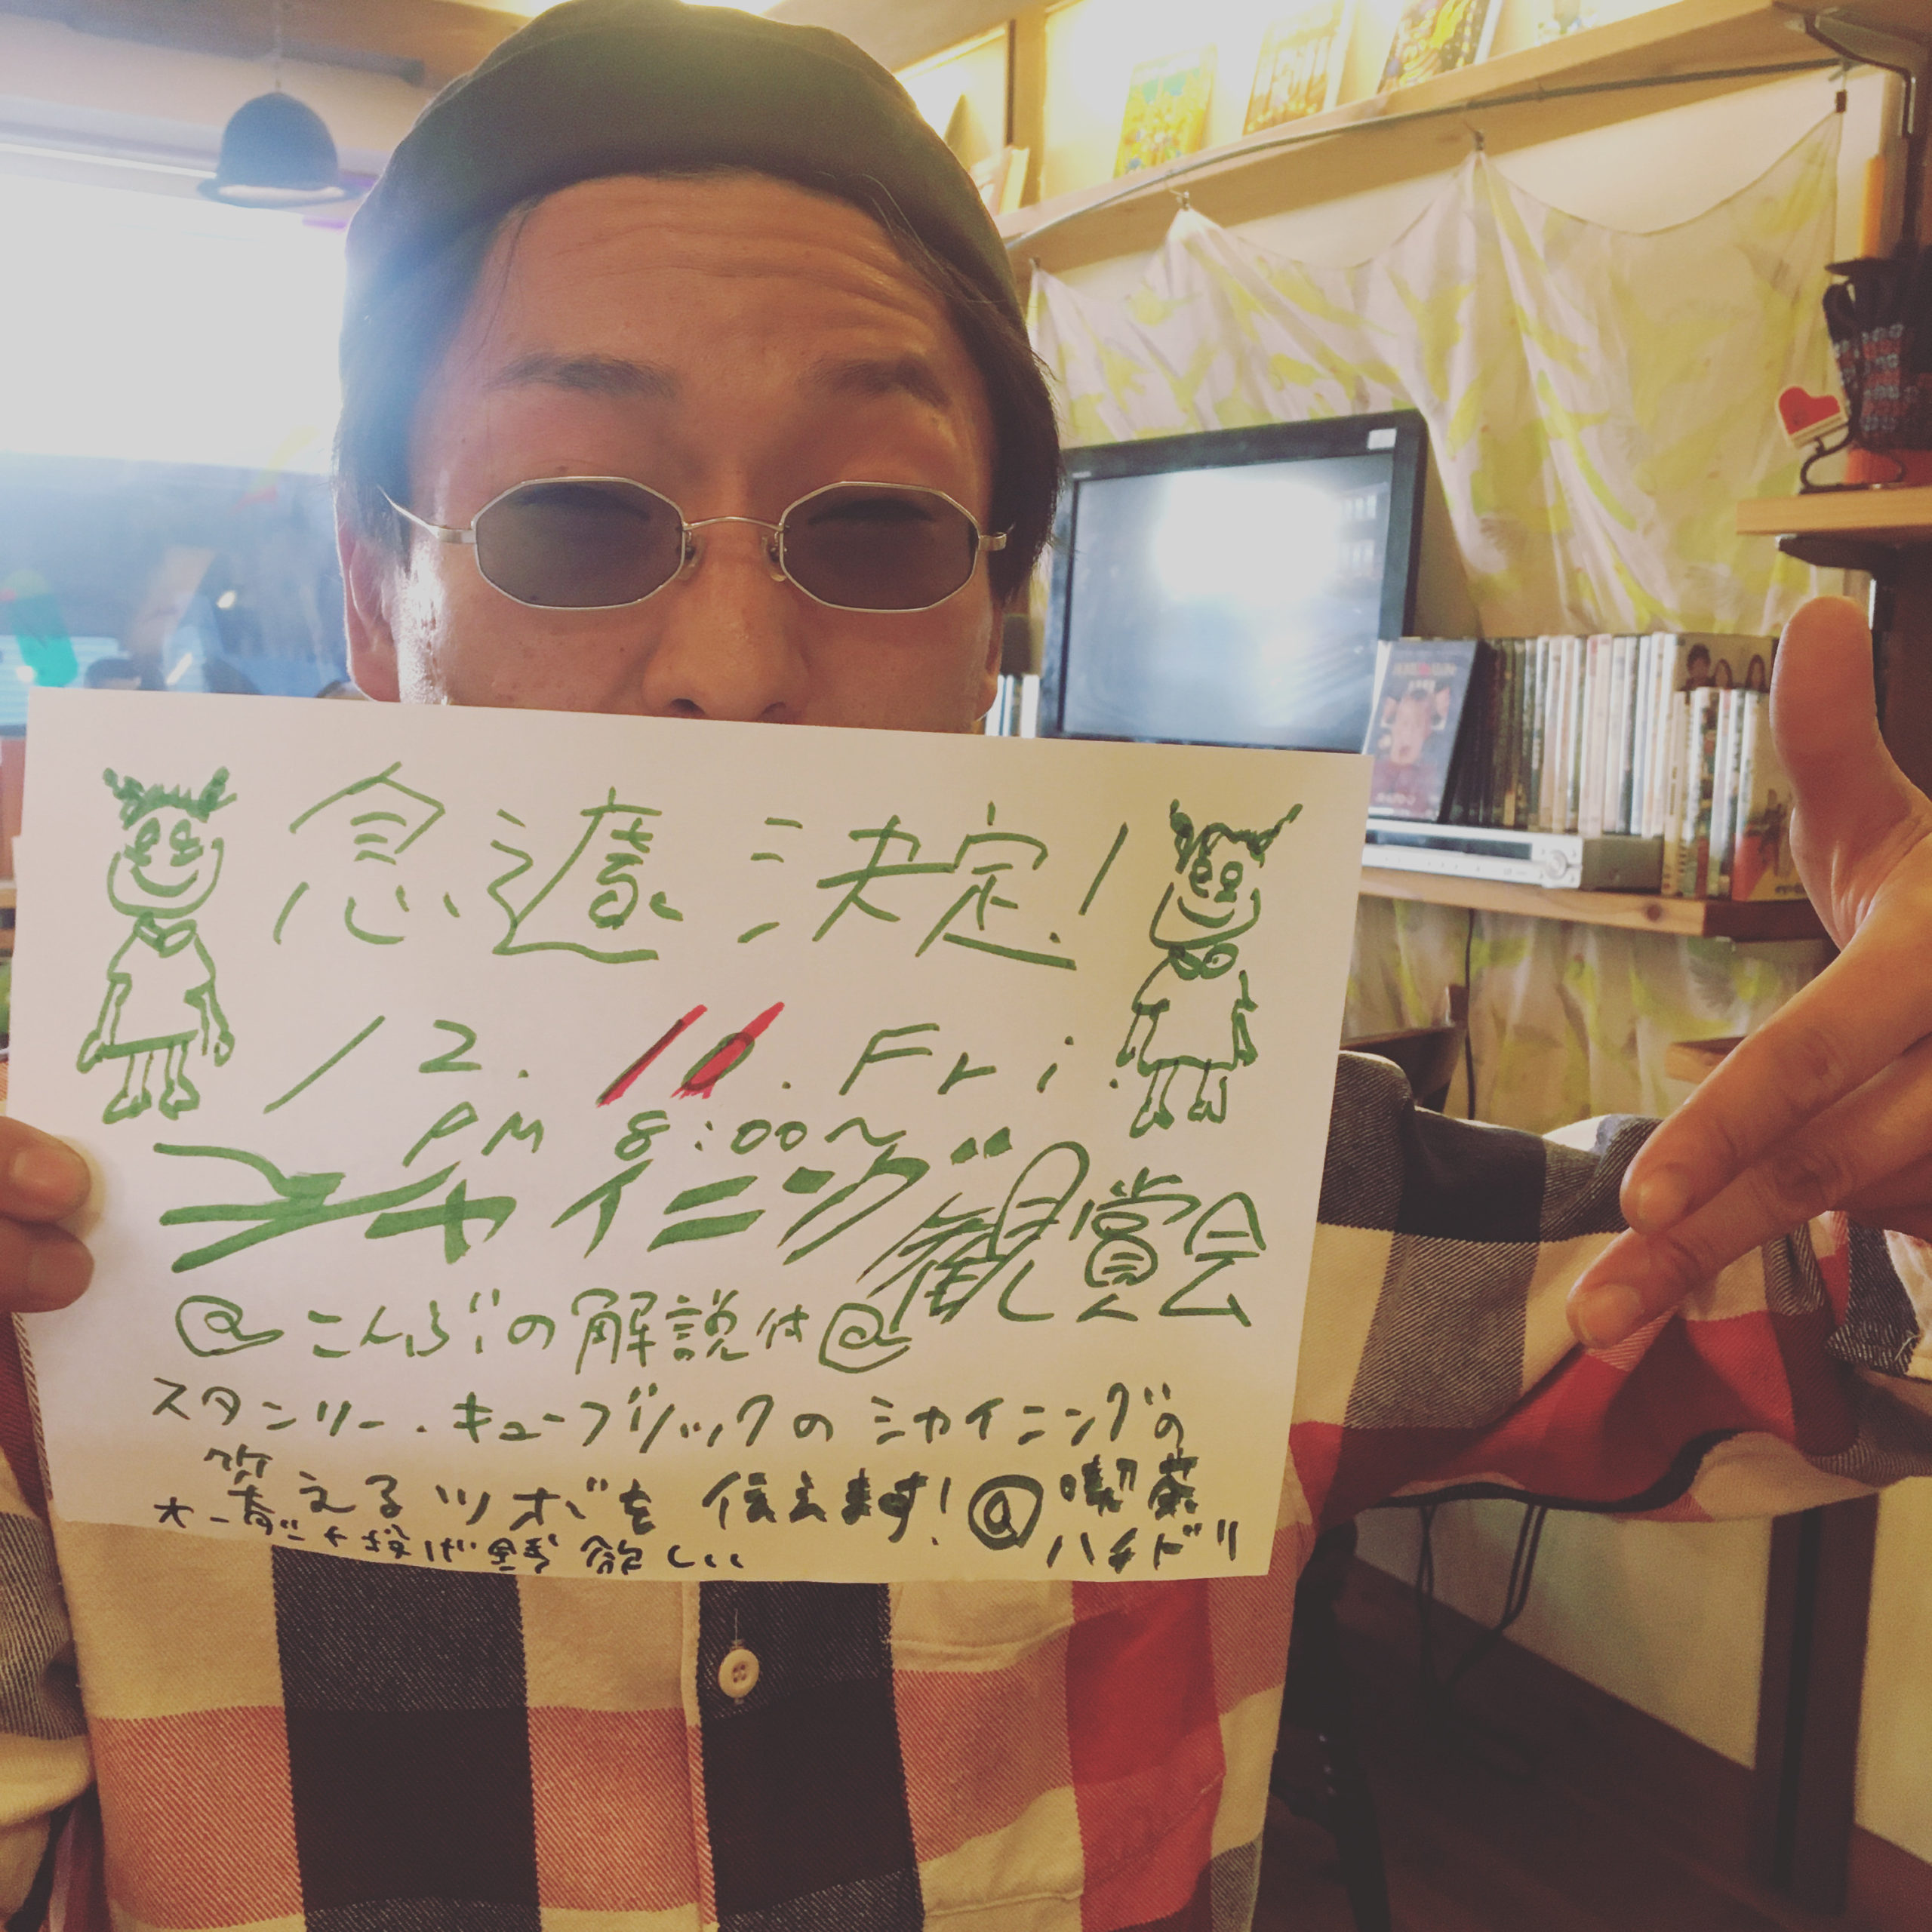 急遽決定!
12.10.Fri.
PM 8:00〜
シャイニング観賞会
@こんぶの解説付@
スタンリー・キューブリックのシャイニングの
笑えるツボを伝えます!@喫茶
ハチドリ
投げ銭欲しい